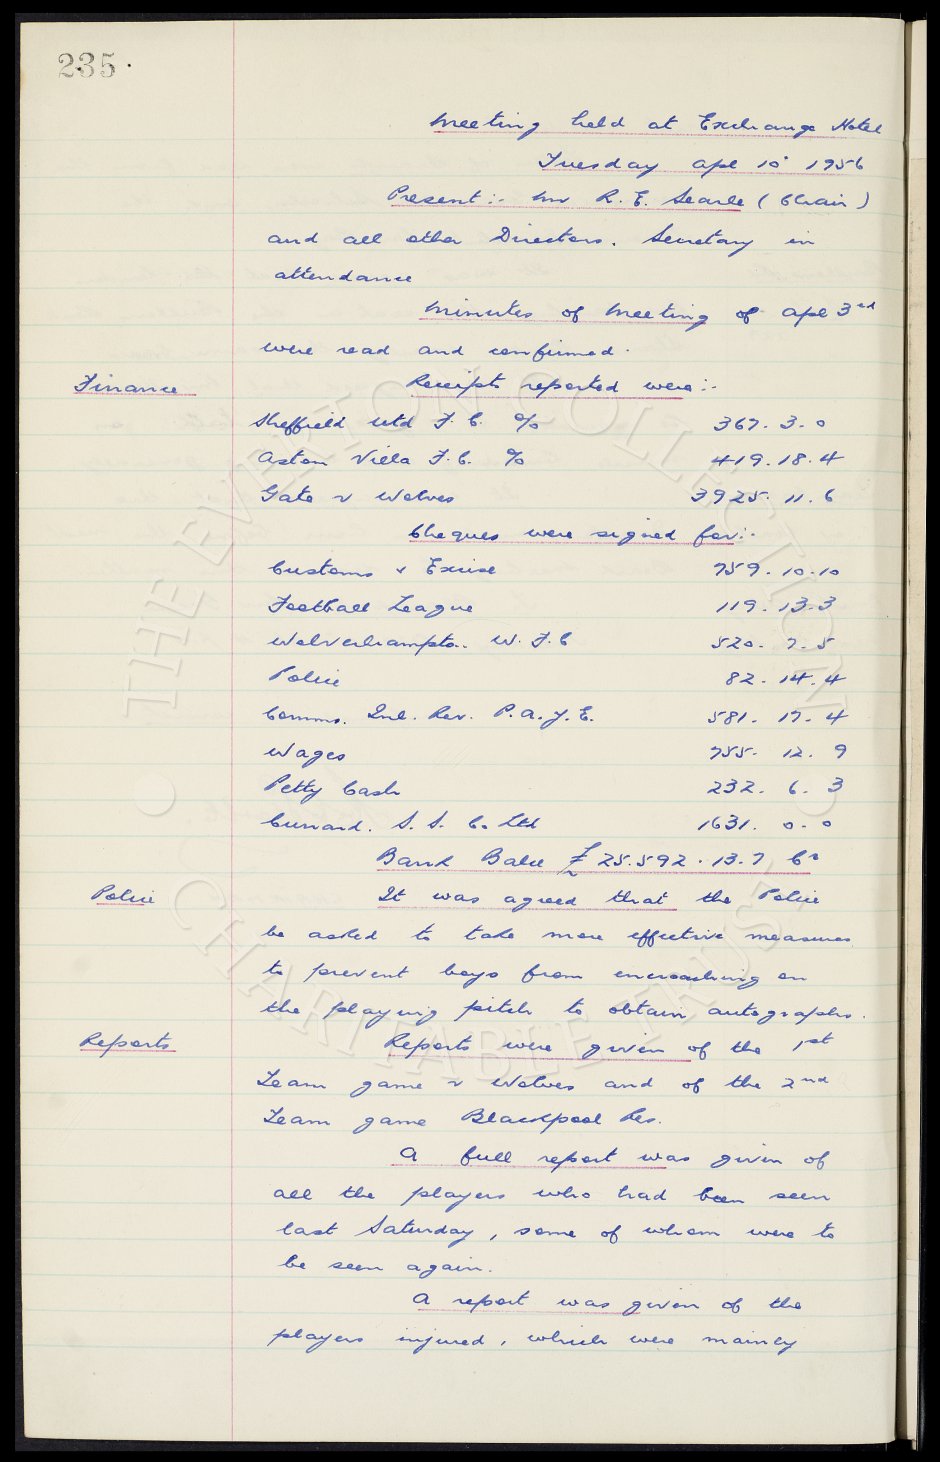 235.
Meeting held at Exchange Hotel
Tuesday Apl 10 1956
Present:- Mr R. E. Searle (Chair)
and all other Directors. Secretary in
attendance
Minutes of Meeting of Apl 3rd
were read and confirmed.
Finance
Receipts reported were:-
Sheffield Utd F.C. % 367. 3. 0
Aston Villa F.C. % 419. 18. 4
Gate v Wolves 3925. 11. 6
Cheques were signed for:-
Customs & Excise 759. 10. 10
Football League 119. 13. 3
Wolverhampton. W. F.C 520. 7. 5
Police 82. 14. 4
Comms. Inl. Rev. P.A.Y.E. 581. 17. 4
Wages 755. 12. 9
Petty Cash 232. 6. 3
Cunard. S. S. Co Ltd 1631. 0. 0
Bank Balce £25.592. 13. 7 Cr
Police
It was agreed that the Police
be asked to take more effective measures
to prevent boys from encroaching on
the playing pitch to obtain autographs.
Reports
Reports were given of the 1st
Team game v Wolves and of the 2nd
Team game Blackpool Res.
A full report was given of
all the players who had been seen
last Saturday, some of whom were to
be seen again.
A report was given of the
players injured, which were mainly
THE EVERTON COLLECTION
CHARITABLE TRUST